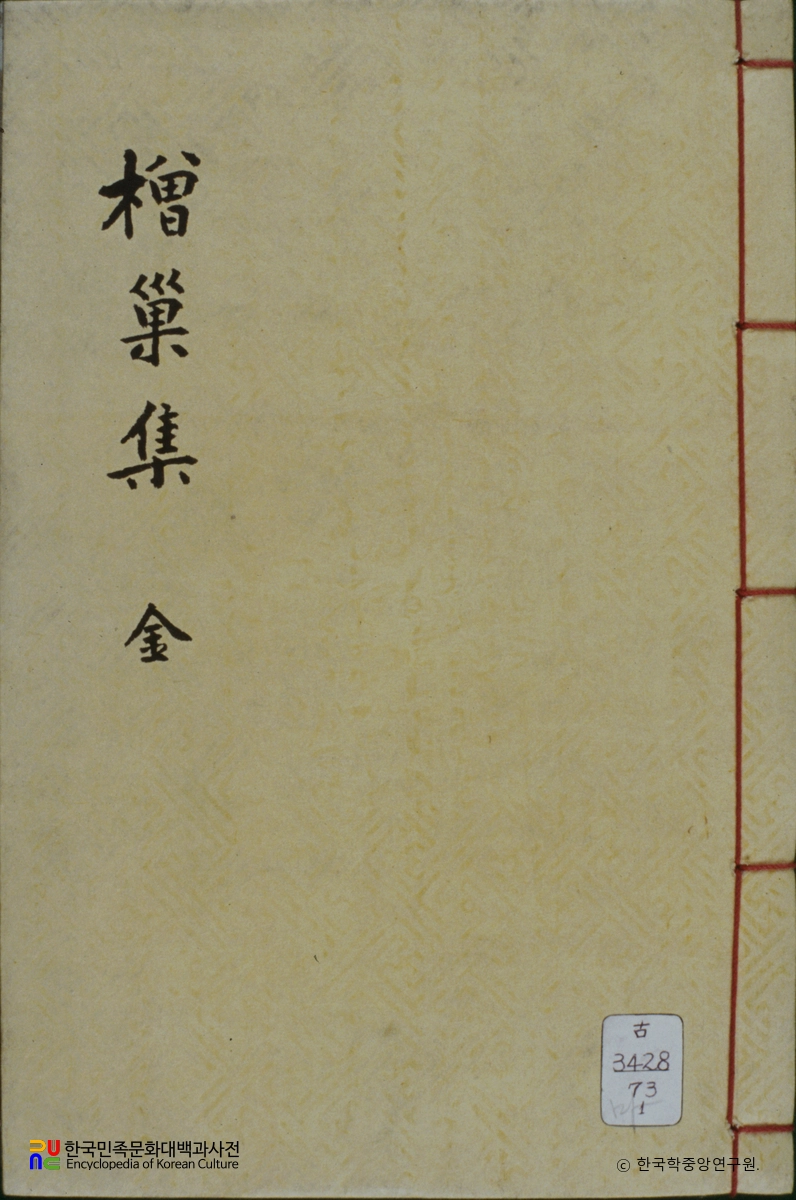 橧巢集 金
古
3428
73
1
한국민족문화대백과사전
Encyclopedia of Korean Culture
ⓒ 한국학중앙연구원.